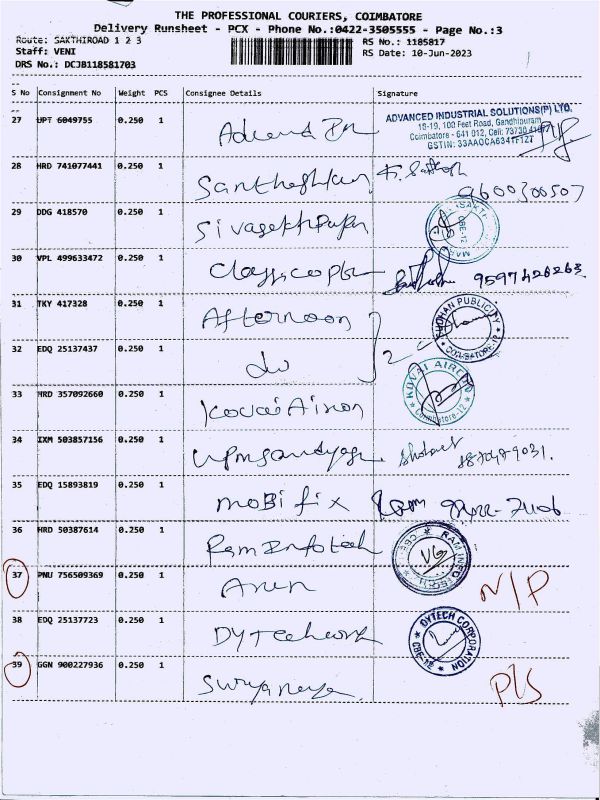 THE PROFESSIONAL COURIERS, COIMBATORE
Delivery Runsheet - PCX - Phone No.:0422-3505555 - Page No.:3
Route: SAKTHIROAD 1 2 3
RS No.: 1185817
Staff: VENI
RS Date: 10-Jun-2023
DRS No.: DCJB118581703
S No Consignment No Weight PCS Consignee Details Signature
ADVANCED INDUSTRIAL SOLUTIONS(P) LTD.
18-19, 100 Feet Road, Gandhipuram
Coimbatore - 641 012, Cell: 73730
GSTIN: 33AAOCA6341F1Z7
27 UPT 6049755 0.250 1
28 HRD 741077441 0.250 1
9600300507
29 DDG 418570 0.250 1
CBE-12
30 VPL 499633472 0.250 1 9597426263
31 TKY 417328 0.250 1 Afternoon
PUBLICITY
COIMBATORE-12
32 EDQ 25137437 0.250 1 do 2
33 HRD 357092660 0.250 1 Kovai Aircon
KOVAI AIRCON
Coimbatore-12
34 IXM 503857156 0.250 1
35 EDQ 15893819 0.250 1 MOBI fix Ram
36 HRD 50387614 0.250 1 Ram Infotech
RAM INFOTECH
CBE
37 PNU 756509369 0.250 1 Arun N/P
38 EDQ 25137723 0.250 1 DYTechcorp
DYTECH CORPORATION
CBE-12
39 GGN 900227936 0.250 1 P/S